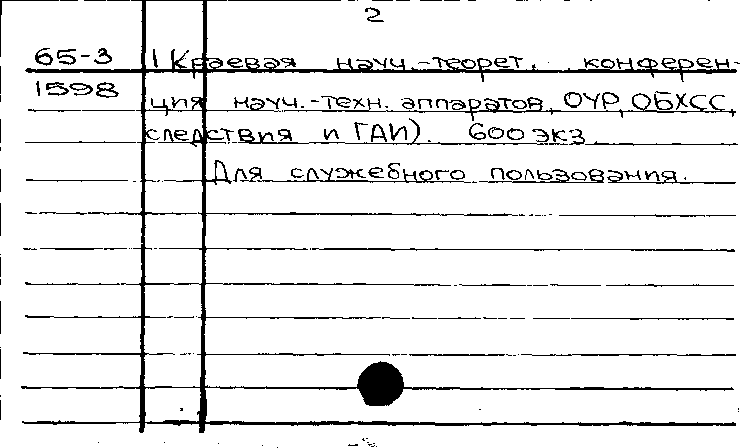 2
65-3 I Краевая науч.-теорет. конферен-
1598 ция науч.-техн. аппаратов, ОУР, ОБХСС,
следствия и ГАИ). 600 экз.
Для служебного пользования.